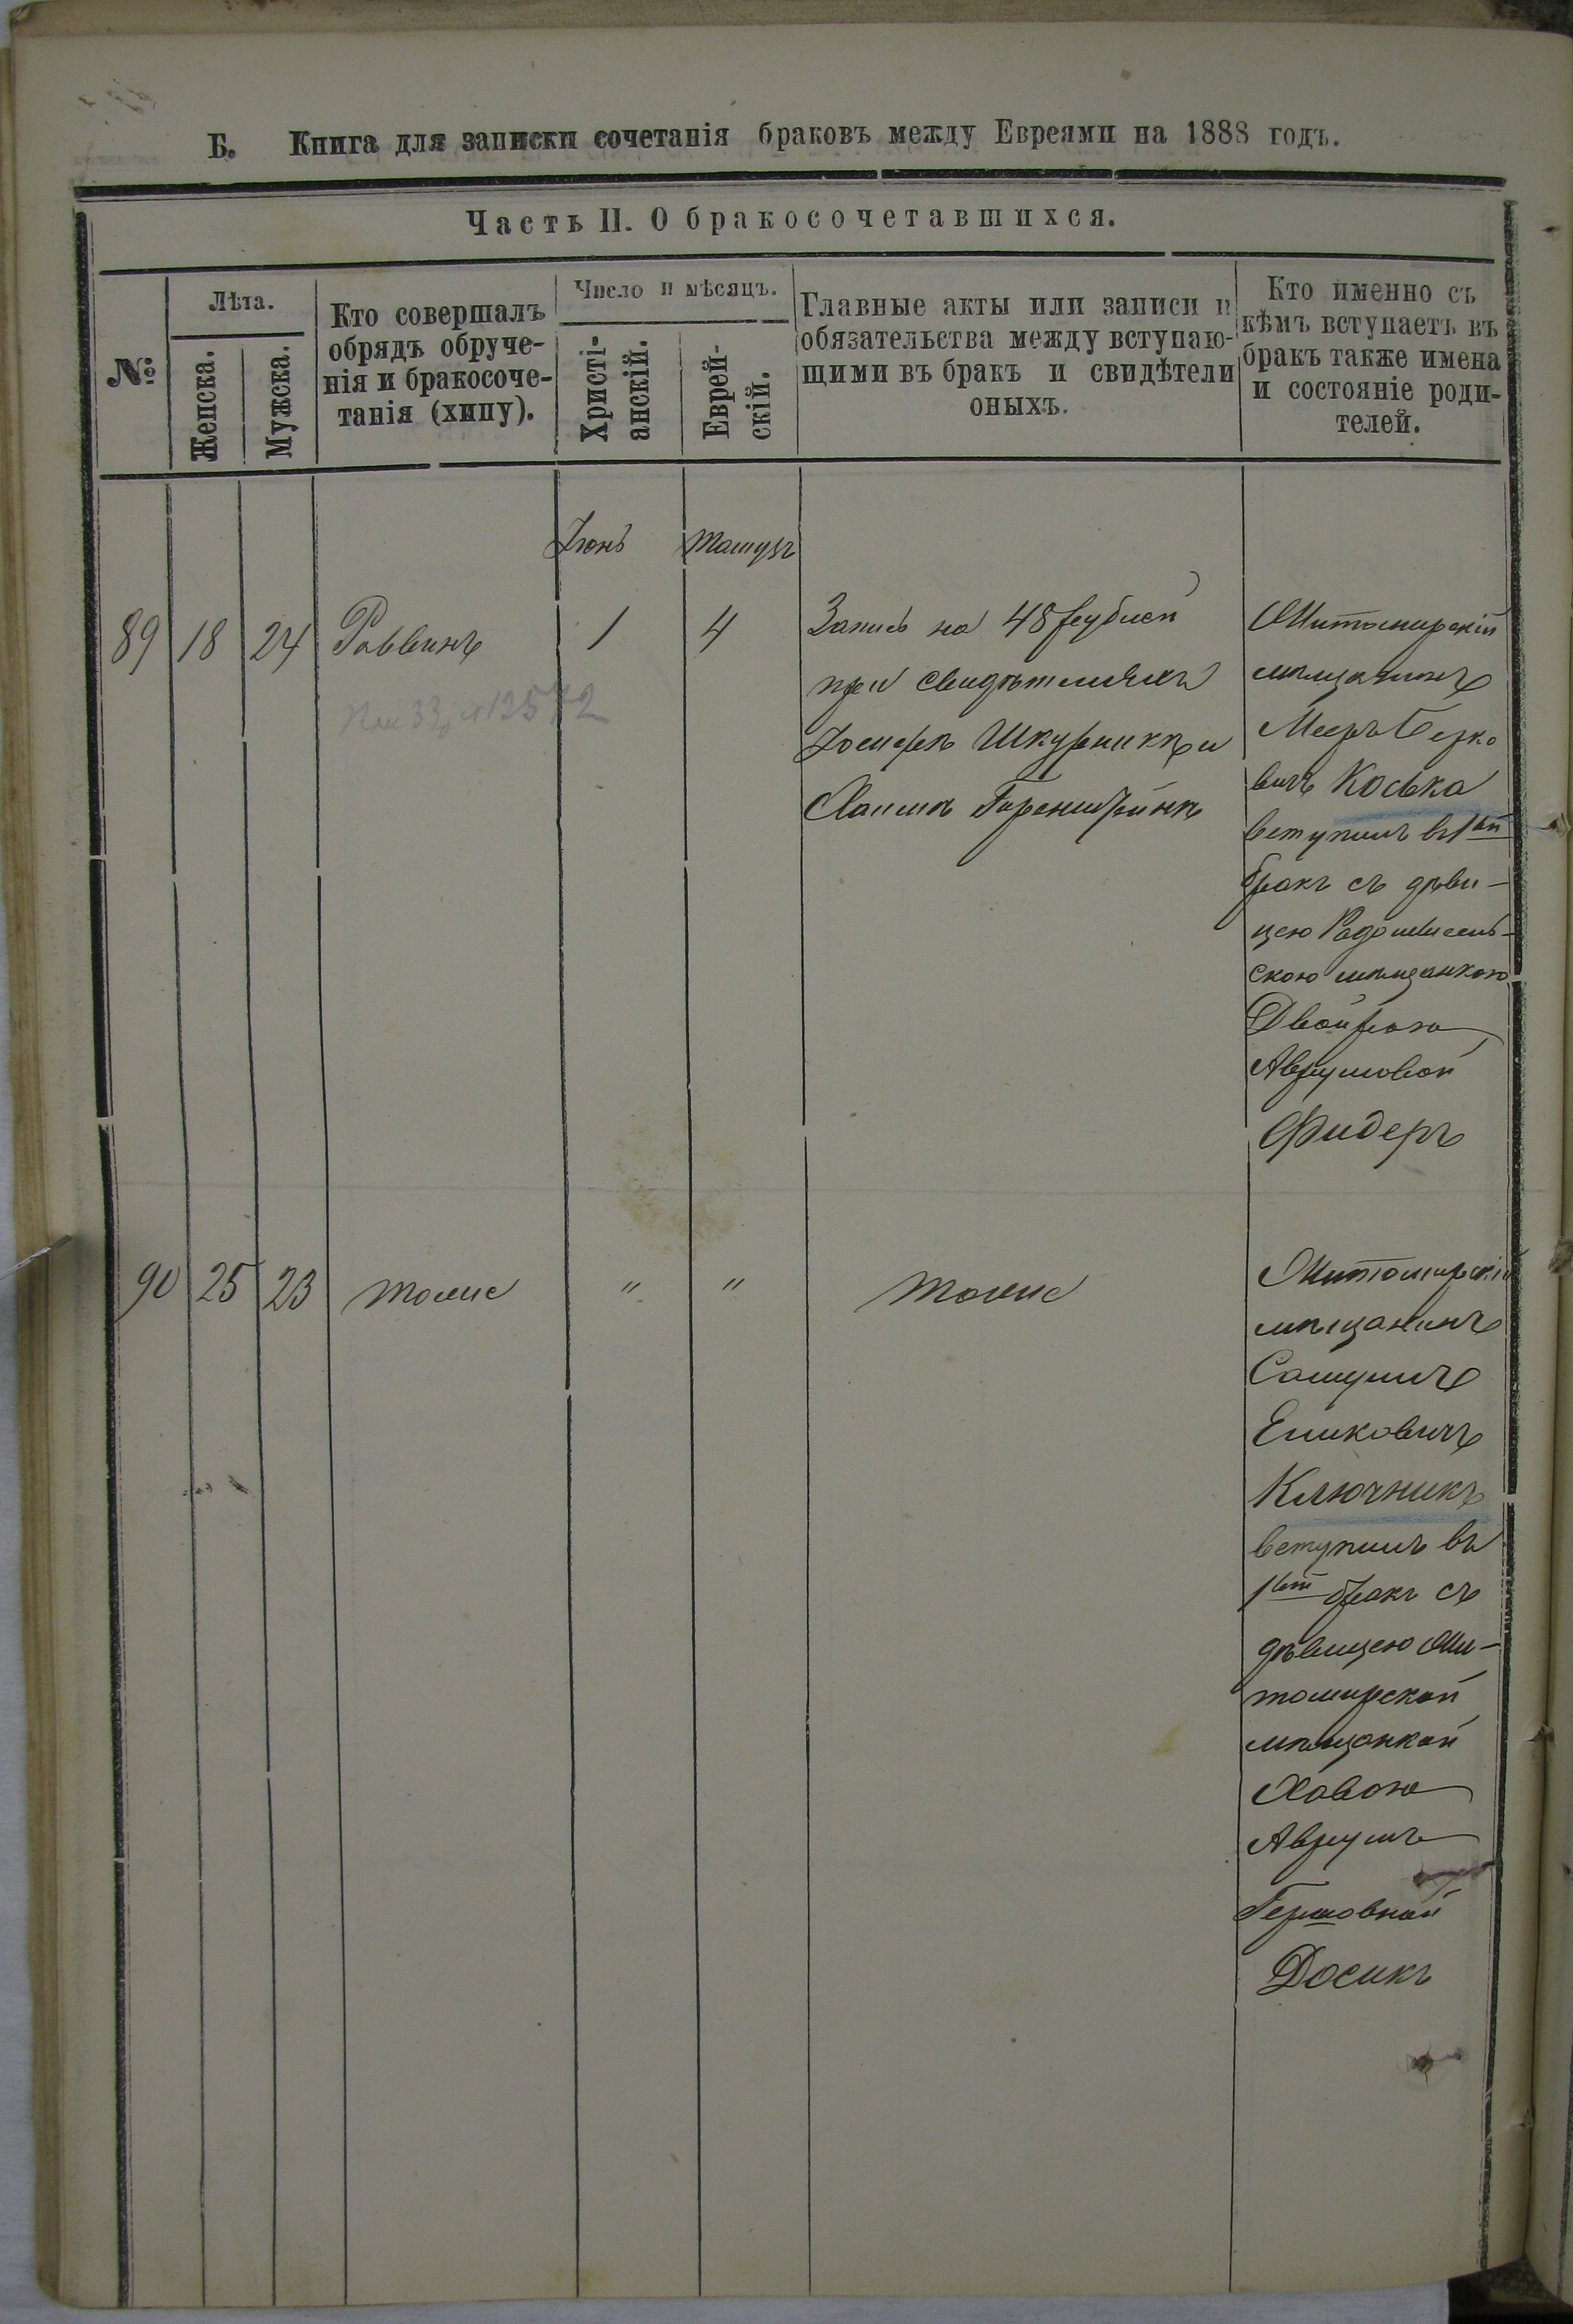 Б. Книга для записки сочетанія браковъ между Евреями на 1888 годъ.
Часть II. О бракосочетавшихся.
№
Лѣта.
Женска.
Мужска.
Кто совершалъ
обрядъ обруче-
нія и бракосоче-
танія (хипу).
Число и мѣсяцъ.
Христі-
анскій.
Еврей-
скій.
Главные акты или записи и
обязательства между вступаю-
щими въ бракъ и свидѣтели
оныхъ.
Кто именно съ
кѣмъ вступаетъ въ
бракъ также имена
и состояніе роди-
телей.
Іюнь Тамузъ
89 18 24 Раввинъ 1 4
Запись на 48 рублей
при свидѣтеляхъ
Іосифѣ Шкурникѣ и
Хаимѣ
Житомирскій
мѣщанинъ
Мееръ Берко
вичъ Коська
вступилъ въ 1ый
бракъ съ дѣви-
цею Радомысль-
скою мѣщанкою
Двойрою
Аврумовой
Фидеръ
90 25 23 тоже " " тоже
Житомирскій
мѣщанинъ
Самуилъ
Ключникъ
вступилъ въ
1ый бракъ съ
дѣвицею Жи-
томирской
мѣщанкой
Хавою
Аврумъ
Гершовной
Досикъ